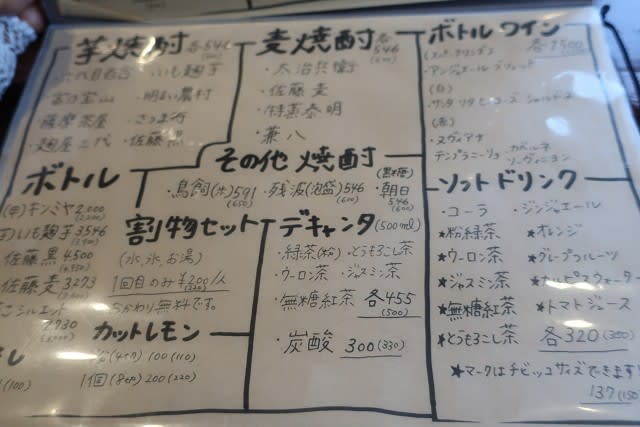 芋焼酎 各546
(600)
・いも麹芋
・富乃宝山 ・明るい農村
・薩摩茶屋 ・さつま寿
・麹屋三代 ・佐藤黒
麦焼酎 各546
(600)
・太治兵衛
・佐藤麦
・特蒸泰明
・兼八
ボトルワイン
各2500
(白)
・サンタ リタ ヒーローズ シャルドネ
(赤)
・ヌヴィアナ
テンプラニーリョ カベルネ
ソーヴィニヨン
その他焼酎
・鳥飼(米)591
(650)
・残波(泡盛)546
(600)
(黒糖)
・朝日
546
(600)
ボトル
(甲)キンミヤ 2,000
(2,200)
いも麹芋 3546
(3,900)
佐藤黒 4,500
(4,950)
佐藤麦 3273
2730
割物セット
(水,氷,お湯)
1回目のみ¥200/人
(220)
おかわり無料です。
カットレモン
(4切) 100(110)
1個(8切) 200(220)
デキャンタ(500ml)
・緑茶(粉) ・とうもろこし茶
・ウーロン茶 ・ジャスミン茶
・無糖紅茶 各455
(500)
・炭酸 300(330)
ソフトドリンク
・コーラ ・ジンジャエール
★粉緑茶 ★オレンジ
★ウーロン茶 ★グレープフルーツ
★ジャスミン茶 ★カルピスウォーター
★無糖紅茶 ★トマトジュース
★とうもろこし茶 各320(350)
★マークはチビッコサイズできます!
137(150